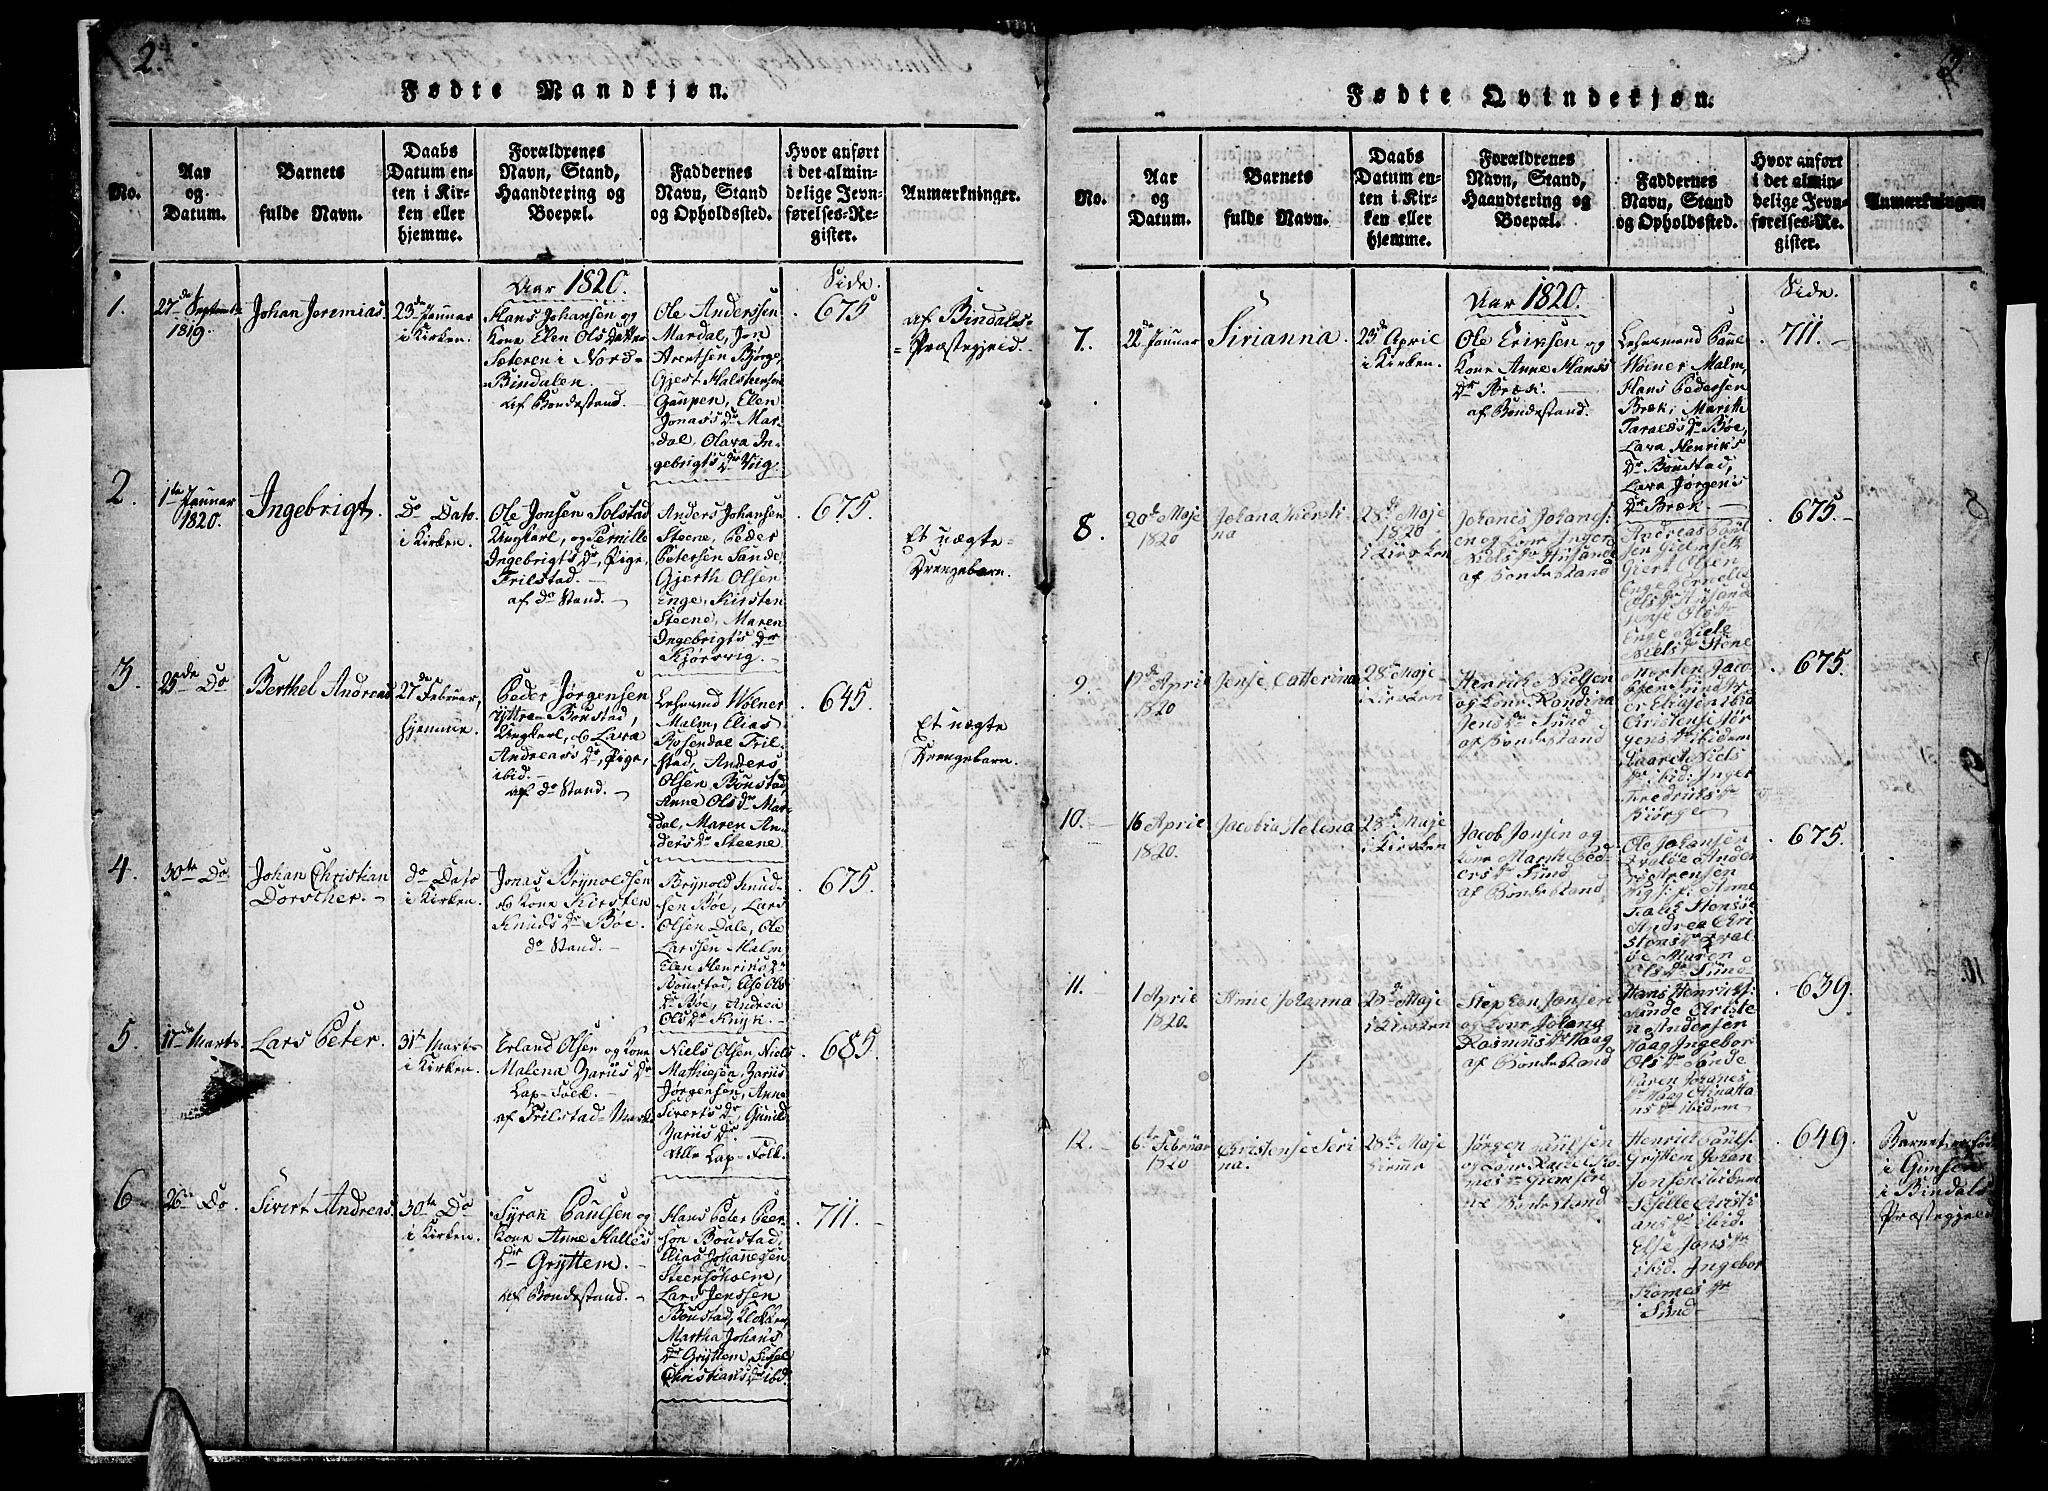 2.
Fødte Mandkjøn.
No.
Aar
og
Datum.
Barnets
fulde Navn.
Daabs
Datum en-
ten i Kir-
ken eller
hjemme.
Forældrenes
Navn, Stand,
Haandtering og
Boepæl.
Faddernes
Navn, Stand
og Opholdssted.
Hvor anført
i det almin-
delige Jevn-
førelses-Re-
gister.
Anmærkninger.
Aar 1820.
Side.
1.
27de Septembr
1819.
Johan Jeremias.
23de Januar
i Kirken.
Hans Johansen og
Kone Elen Ols Datter
Seteren i Nord-
Bindalen.
af Bondestand.
Ole Anderssen
Mardal, Jon
Arentsen Bjørge,
Gjest Halstensen
Gaupen, Elen
Jonas's Dr Mar-
dal, Olava In-
gebrigt's Dr Viig.
675
af Bindalens
Præstegjeld.
2.
1te Januar
1820.
Ingebrigt.
Do Dato.
i Kirken.
Ole Jonsen Solstad
Ungkarl, og Pernille
Ingebrigt's Dr, Pige,
Trilstad.
af do Stand.
Anders Johansen
Steene, Peder
Petersen Sande,
Gjerth Olsen
Enge, Kirsten
Steene, Maren
Ingebrigt's Dr
Kjørvvig.
675.
Et uægte
Drengebarn.
3.
25nde Do
Berthel Andreas
27de Februar,
hjemme.
Peder Jørgensen
Ungkarl, & Lara
Andreas's Dr, Pige,
ibid.
af do Stand.
Lehnsmd Wolner
Malm, Elias
Rosendal Tril-
stad, Anders
Olsen Bønstad,
Anne Ols Dr Mar-
dal, Maren An-
ders Dr Steene.
645.
Et uægte
Drengebarn.
4.
30te Do
Johan Christian
Dorscher.
do Dato
i Kirken.
Jonas Brynoldsen
& Kone Kirsten
Knuds Dr Bøe.
do Stand.
Brynold Knud-
sen Bøe, Lars
Olsen Dale, Ole
Larssen Malm,
Elen Henriks Dr
Bøustad, Else Ols
Dr Bøe, Andrea
Ols Dr Knyk.
675.
5.
17de Marts.
Lars Peter.
31te Marts
i Kirken.
Erland Olsen og Kone
Malena Zarius Dr
Lap-Folk.
af Trilstad-Mark.
Niels Olsen, Niels
Mathiesen, Zarius
Jørgensen, Anne
Siverts Dr, Gunild
Zarius Dr.
Alle Lap-Folk.
685.
6.
26de Do.
Sivert Andreas.
30te Do
i Kirken.
Syrak Paulsen og
Kone Anne Halles
Dr Gryttem.
af Bondestand.
Hans Peter Peer-
son Boustad,
Elias Johannesen
Steensøholm,
Lars Jenssen
Boustad, Klokker,
Martha Johans
Dr Gryttem, Sissel
Christians Dr ibid.
711.
Fødte Qvindekjøn.
No.
Aar
og
Datum.
Barnets
fulde Navn.
Daabs
Datum en-
ten i Kir-
ken eller
hjemme.
Forældrenes
Navn, Stand,
Haandtering og
Boepæl.
Faddernes
Navn, Stand
og Opholdssted.
Hvor anført
i det almin-
delige Jevn-
førelses-Re-
gister.
Anmærkninger.
Aar 1820.
Side.
7.
22de Januar
Sirianna.
23de April
i Kirken.
Ole Eriksen og
Kone Anne Hans's
Dr Bræk.
af Bondestand.
Lehnsmand Paul
Wolner Malm,
Hans Pedersen
Bræk, Marith
Taralds Dr Bøe,
Lara Henriks
Dr Boustad,
Lara Jørgens
Dr Bræk.
711.
8.
20de Maje
1820
Johana Kiersti-
na
28de Maje
1820
i Kirken
Johanes Johanes-
en og Kone Inger
Niels Dr
af Bondestand
Andreas Poul-
sen
Giert Olsen
Enge Pernelle
Ols Dr
Jense Ols Dr
Enge
Niels Dr Stene
675.
9.
19de April
1820
Jense Catterina
28de Maje
i Kirken
Henrich Nielsen
og Kone Randina
Jens Dr Sund
af Bondestand
Morten Jaco-
bsen Sund
ibid
Christense Jør-
gens Dr ibidem
Maaret Niels
Dr ibid: Inger
Fredriks Dr
Biørge
675.
10.
16 April
1820.
Jacobia Helena
28de Maje
i Kirken
Jacob Jonsen og
Kone Marith Ped-
ers Dr Sund
af Bondestand
Ole Johansen
Andrea Chri-
stens Dr
Maren
Ols Dr Sund
675.
11.
1 April
1820.
Anne Johanna
28de Maje
i Kirken
Stephen Jonsen
og Kone Johana
Rasmus Dr Haag
af Bondestand
Hans Henrichs:
Sande Christe
n Andersen
Haag Ingebor
Ols Dr Sande
Karen Johanes
Dr Haag
ans Dr ibidem
639.
12.
6te Februar
1820
Christense Seri
na.
28de Maje
Jørgen Paulsen
og Kone
Dr Gimsen
Bondestand
Henrich Pauls:
Gryttem Johan
Jonsen ibidem
Sisselle Christi
ans Dr ibid.
Else Jons Dr
ibid. Ingebor
Tomes Dr
Sund
649.
Barnet er fød
i Gimsen
i Bindals
Præstegjeld